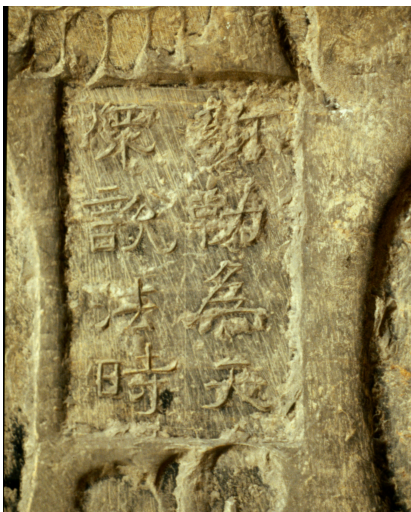 弥勒為天
衆說法時